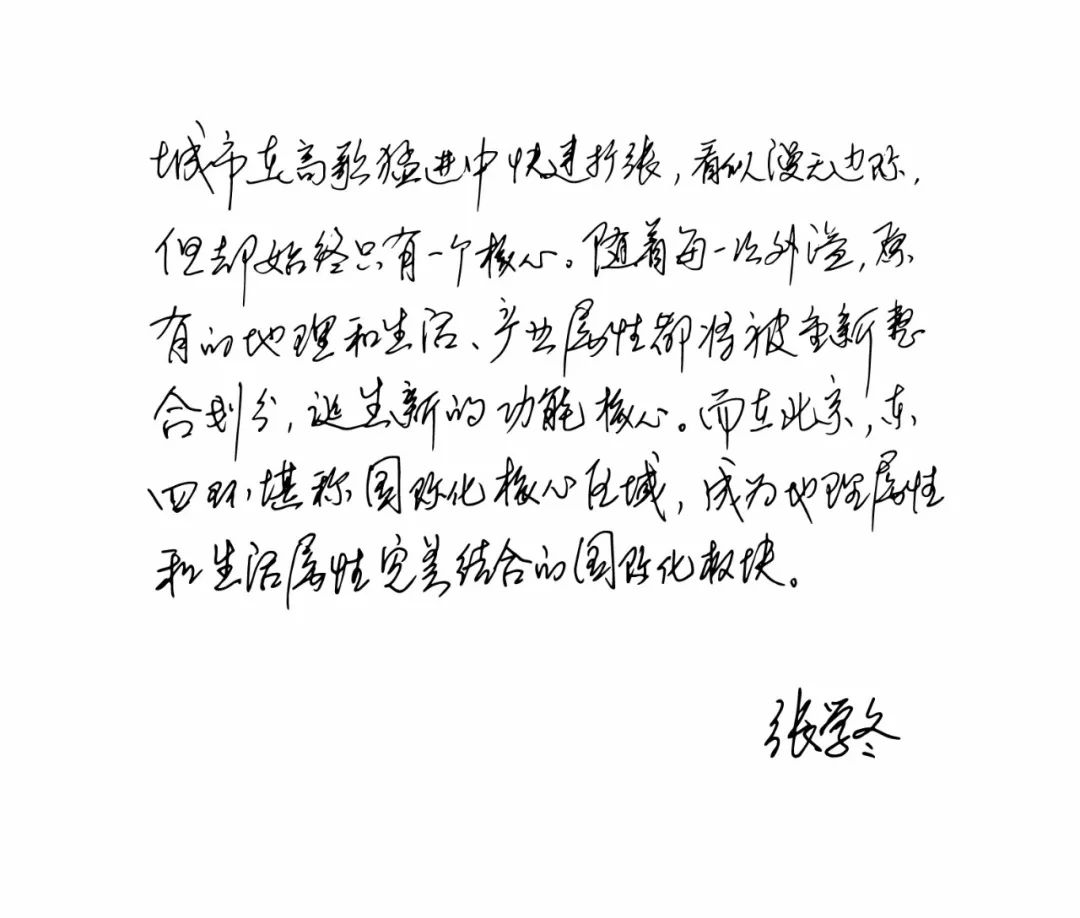 城市在高歌猛进中快速扩张，看似漫无边际，
但却始终只有一个核心。随着每一次外溢，原
有的地理和生活、产业属性都将被重新整
合划分，诞生新的功能核心。而在北京，东
四环堪称国际化核心区域，成为地理属性
和生活属性完美结合的国际化板块。
张学冬